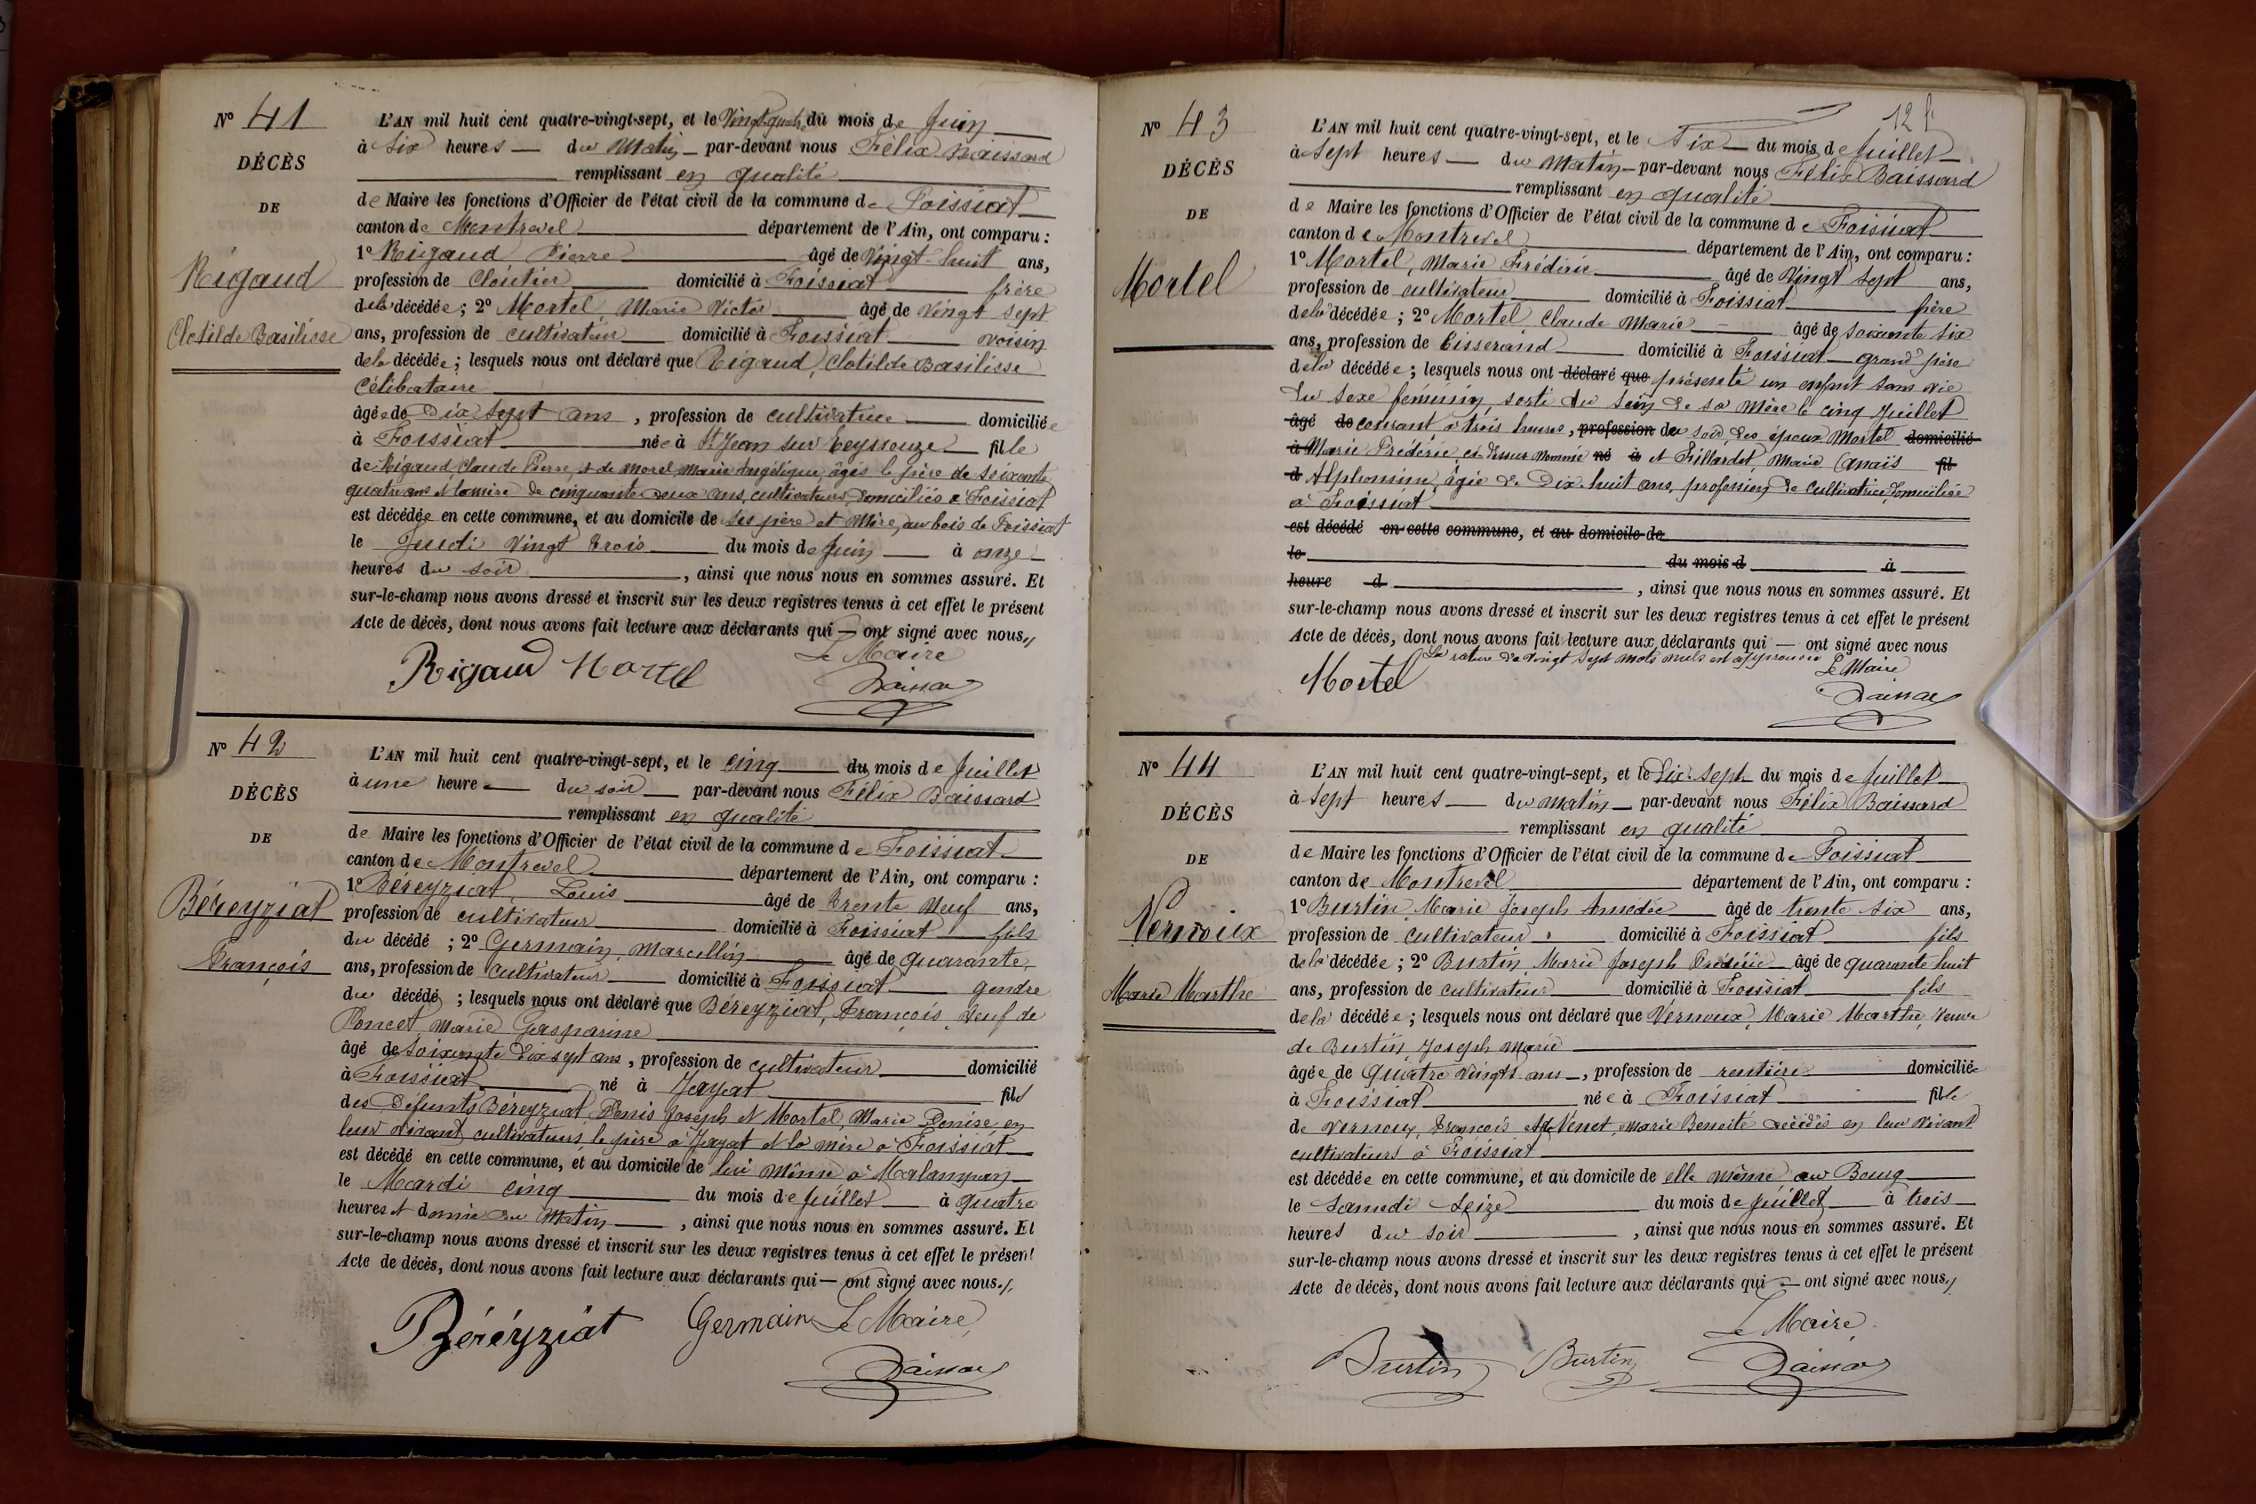 N° 41
DÉCÈS
DE
Rigaud
Clotilde Basilisse
L'AN mil huit cent quatre-vingt-sept, et le Vingt quatre du mois de Juin
à Six heures du Matin par-devant nous Félix Baissard
remplissant en qualité
de Maire les fonctions d'Officier de l'état civil de la commune de Foissiat
canton de Montrevel département de l'Ain, ont comparu :
1° Rigaud Pierre âgé de Vingt huit ans,
profession de Cloutier domicilié à Foissiat frère
de la décédée ; 2° Mortel, Marie Victor âgé de Vingt sept
ans, profession de cultivateur domicilié à Foissiat voisin
de la décédée ; lesquels nous ont déclaré que Rigaud, Clotilde Basilisse
Célibataire
âgée de Dix sept ans, profession de cultivatrice domiciliée
à Foissiat née à St Jean sur Reyssouze fille
de Rigaud, Claude Pierre, et de Morel, Marie Angélique, âgés le père de soixante
quatre ans et la mère de cinquante deux ans, cultivateurs domiciliés à Foissiat
est décédée en cette commune, et au domicile de ses père et mère, au bois de Foissiat
le Jeudi Vingt trois du mois de Juin à onze
heures du soir, ainsi que nous nous en sommes assuré. Et
sur-le-champ nous avons dressé et inscrit sur les deux registres tenus à cet effet le présent
Acte de décès, dont nous avons fait lecture aux déclarants qui ont signé avec nous
Le Maire
Rigaud Mortel Baissard
N° 42
DÉCÈS
DE
Béreyziat
François
L'AN mil huit cent quatre-vingt-sept, et le cinq du mois de Juillet
à une heure du soir par-devant nous Félix Baissard
remplissant en qualité
de Maire les fonctions d'Officier de l'état civil de la commune de Foissiat
canton de Montrevel département de l'Ain, ont comparu :
1° Béreyziat, Louis âgé de trente neuf ans,
profession de cultivateur domicilié à Foissiat fils
du décédé ; 2° Germain, Marcellin âgé de quarante
ans, profession de cultivateur domicilié à Foissiat gendre
du décédé ; lesquels nous ont déclaré que Béreyziat, François, veuf de
Poncet, Marie Gasparine
âgé de soixante dix sept ans, profession de cultivateur domicilié
à Foissiat né à Jayat fils
des défunts Béreyziat Denis Joseph et Mortel, Marie Denise, en
leur vivant cultivateurs, le père à Jayat et la mère à Foissiat
est décédé en cette commune, et au domicile de lui même à Malamgean
le Mardi cinq du mois de Juillet à quatre
heures et demie du Matin, ainsi que nous nous en sommes assuré. Et
sur-le-champ nous avons dressé et inscrit sur les deux registres tenus à cet effet le présent
Acte de décès, dont nous avons fait lecture aux déclarants qui ont signé avec nous
Béréyziat Germain Le Maire
Baissard
12 f
N° 43
DÉCÈS
DE
Mortel
L'AN mil huit cent quatre-vingt-sept, et le Six du mois de Juillet
à Sept heures du Matin par-devant nous Félix Baissard
remplissant en qualité
de Maire les fonctions d'Officier de l'état civil de la commune de Foissiat
canton de Montrevel département de l'Ain, ont comparu :
1° Mortel, Marie Frédéric âgé de Vingt sept ans,
profession de cultivateur domicilié à Foissiat père
de la décédée ; 2° Mortel, Claude Marie âgé de soixante six
ans, profession de Tisserand domicilié à Foissiat grand père
de la décédée ; lesquels nous ont déclaré que présenté un enfant sans vie
du sexe féminin, sorti du sein de sa mère le cinq Juillet
âgé de courant à trois heures, profession de du soir, des époux Mortel domicilié
à Marie Frédéric, ci dessus nommé né à et Fillardet, Marie Anaïs fil
d Alphonsine, âgée de Dix huit ans, profession de cultivatrice, domiciliée
à Foissiat
est décédé en cette commune, et au domicile de
le du mois d à
heure d, ainsi que nous nous en sommes assuré. Et
sur-le-champ nous avons dressé et inscrit sur les deux registres tenus à cet effet le présent
Acte de décès, dont nous avons fait lecture aux déclarants qui ont signé avec nous
La rature de vingt sept mots nuls est approuvée
Le Maire
Mortel Baissard
N° 44
DÉCÈS
DE
Vernoux
Marie Marthe
L'AN mil huit cent quatre-vingt-sept, et le Dix Sept du mois de Juillet
à Sept heures du Matin par-devant nous Félix Baissard
remplissant en qualité
de Maire les fonctions d'Officier de l'état civil de la commune de Foissiat
canton de Montrevel département de l'Ain, ont comparu :
1° Burtin, Marie Joseph Amédée âgé de trente six ans,
profession de cultivateur domicilié à Foissiat fils
de la décédée ; 2° Burtin, Marie Joseph Frédéric âgé de quarante huit
ans, profession de cultivateur domicilié à Foissiat fils
de la décédée ; lesquels nous ont déclaré que Vernoux, Marie Marthe, Veuve
de Burtin, Joseph Marie
âgée de quatre vingts ans, profession de rentière domiciliée
à Foissiat née à Foissiat fille
de Vernoux, François et de Venet, Marie Benoite décédés en leur vivant
cultivateurs à Foissiat
est décédée en cette commune, et au domicile de elle même au Bourg
le Samedi Seize du mois de Juillet à trois
heures du soir, ainsi que nous nous en sommes assuré. Et
sur-le-champ nous avons dressé et inscrit sur les deux registres tenus à cet effet le présent
Acte de décès, dont nous avons fait lecture aux déclarants qui ont signé avec nous
Le Maire
Burtin Burtin Baissard